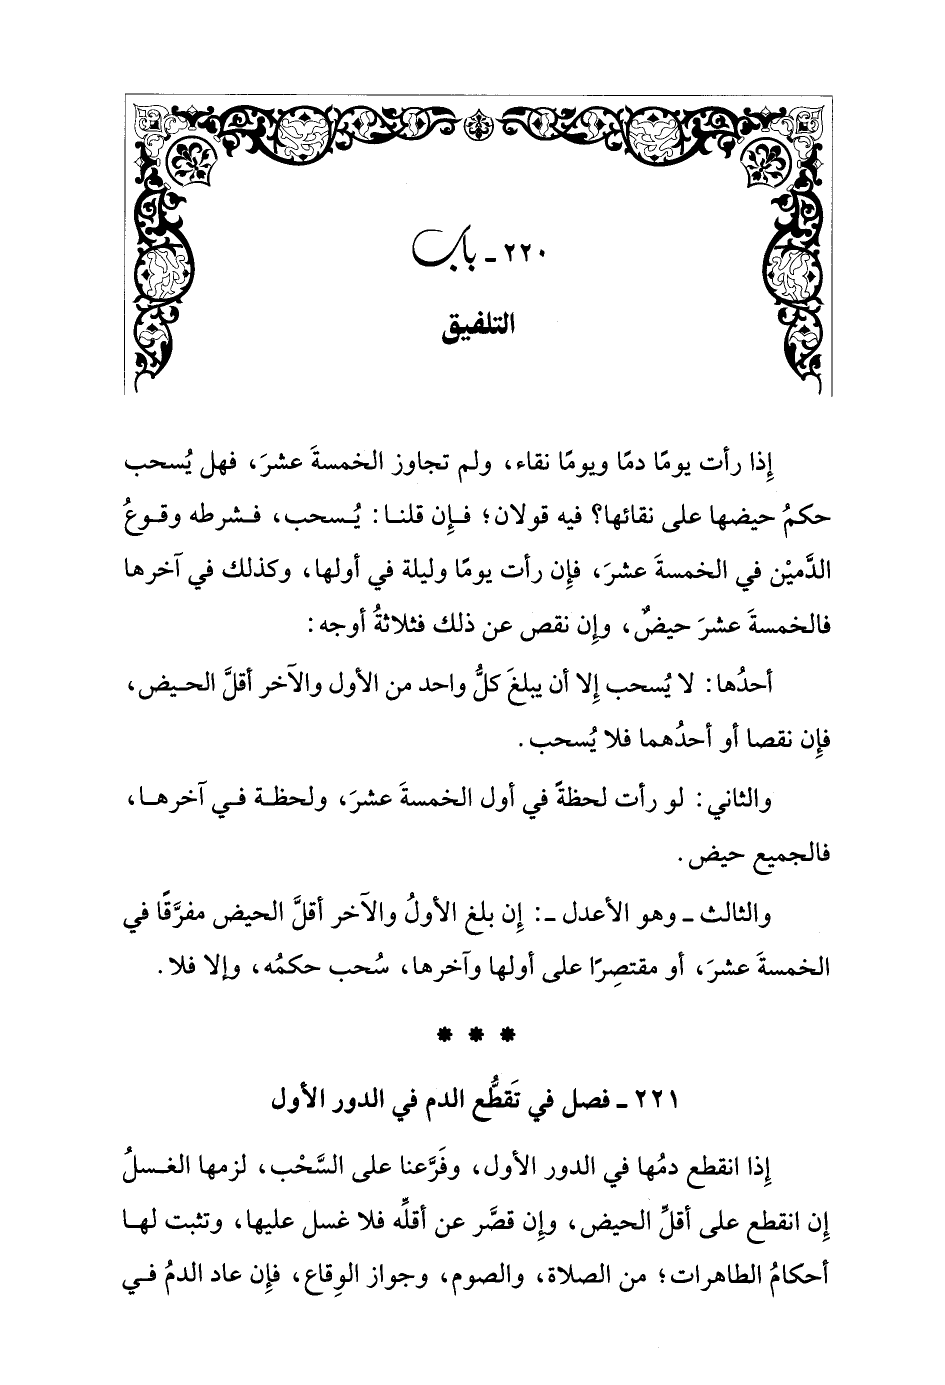 ٢٢٠ - باب
التلفيق
إذا رأت يومًا دمًا ويومًا نقاء، ولم تجاوز الخمسةَ عشرَ، فهل يُسحب
حكمُ حيضها على نقائها؟ فيه قولان؛ فإن قلنا: يُسحب، فشرطه وقوعُ
الدَّميْن في الخمسةَ عشرَ، فإن رأت يومًا وليلة في أولها، وكذلك في آخرها
فالخمسةَ عشرَ حيضٌ، وإن نقص عن ذلك فثلاثةُ أوجه:
أحدُها: لا يُسحب إلا أن يبلغَ كلُّ واحد من الأول والآخر أقلَّ الحيض،
فإن نقصا أو أحدُهما فلا يُسحب.
والثاني: لو رأت لحظةً في أول الخمسةَ عشرَ، ولحظة في آخرها،
فالجميع حيض.
والثالث - وهو الأعدل -: إن بلغ الأولُ والآخر أقلَّ الحيض مفرَّقًا في
الخمسةَ عشرَ، أو مقتصِرًا على أولها وآخرها، سُحب حكمُه، وإلا فلا.
* * *
٢٢١ - فصل في تَقطُّع الدم في الدور الأول
إذا انقطع دمُها في الدور الأول، وفَرَّعنا على السَّحْب، لزمها الغسلُ
إن انقطع على أقلِّ الحيض، وإن قصَّر عن أقلِّه فلا غسل عليها، وتثبت لها
أحكامُ الطاهرات؛ من الصلاة، والصوم، وجواز الوِقاع، فإن عاد الدمُ في